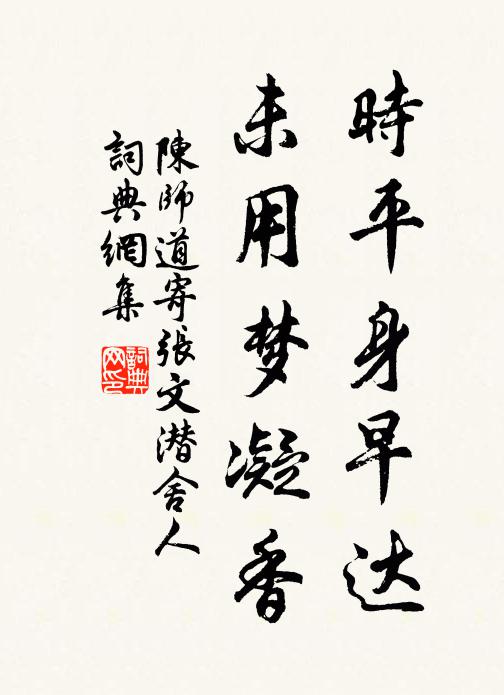 時平身早达
未用梦凝香
陳師道寄張文潜舍人
詞典網集
詞典网印